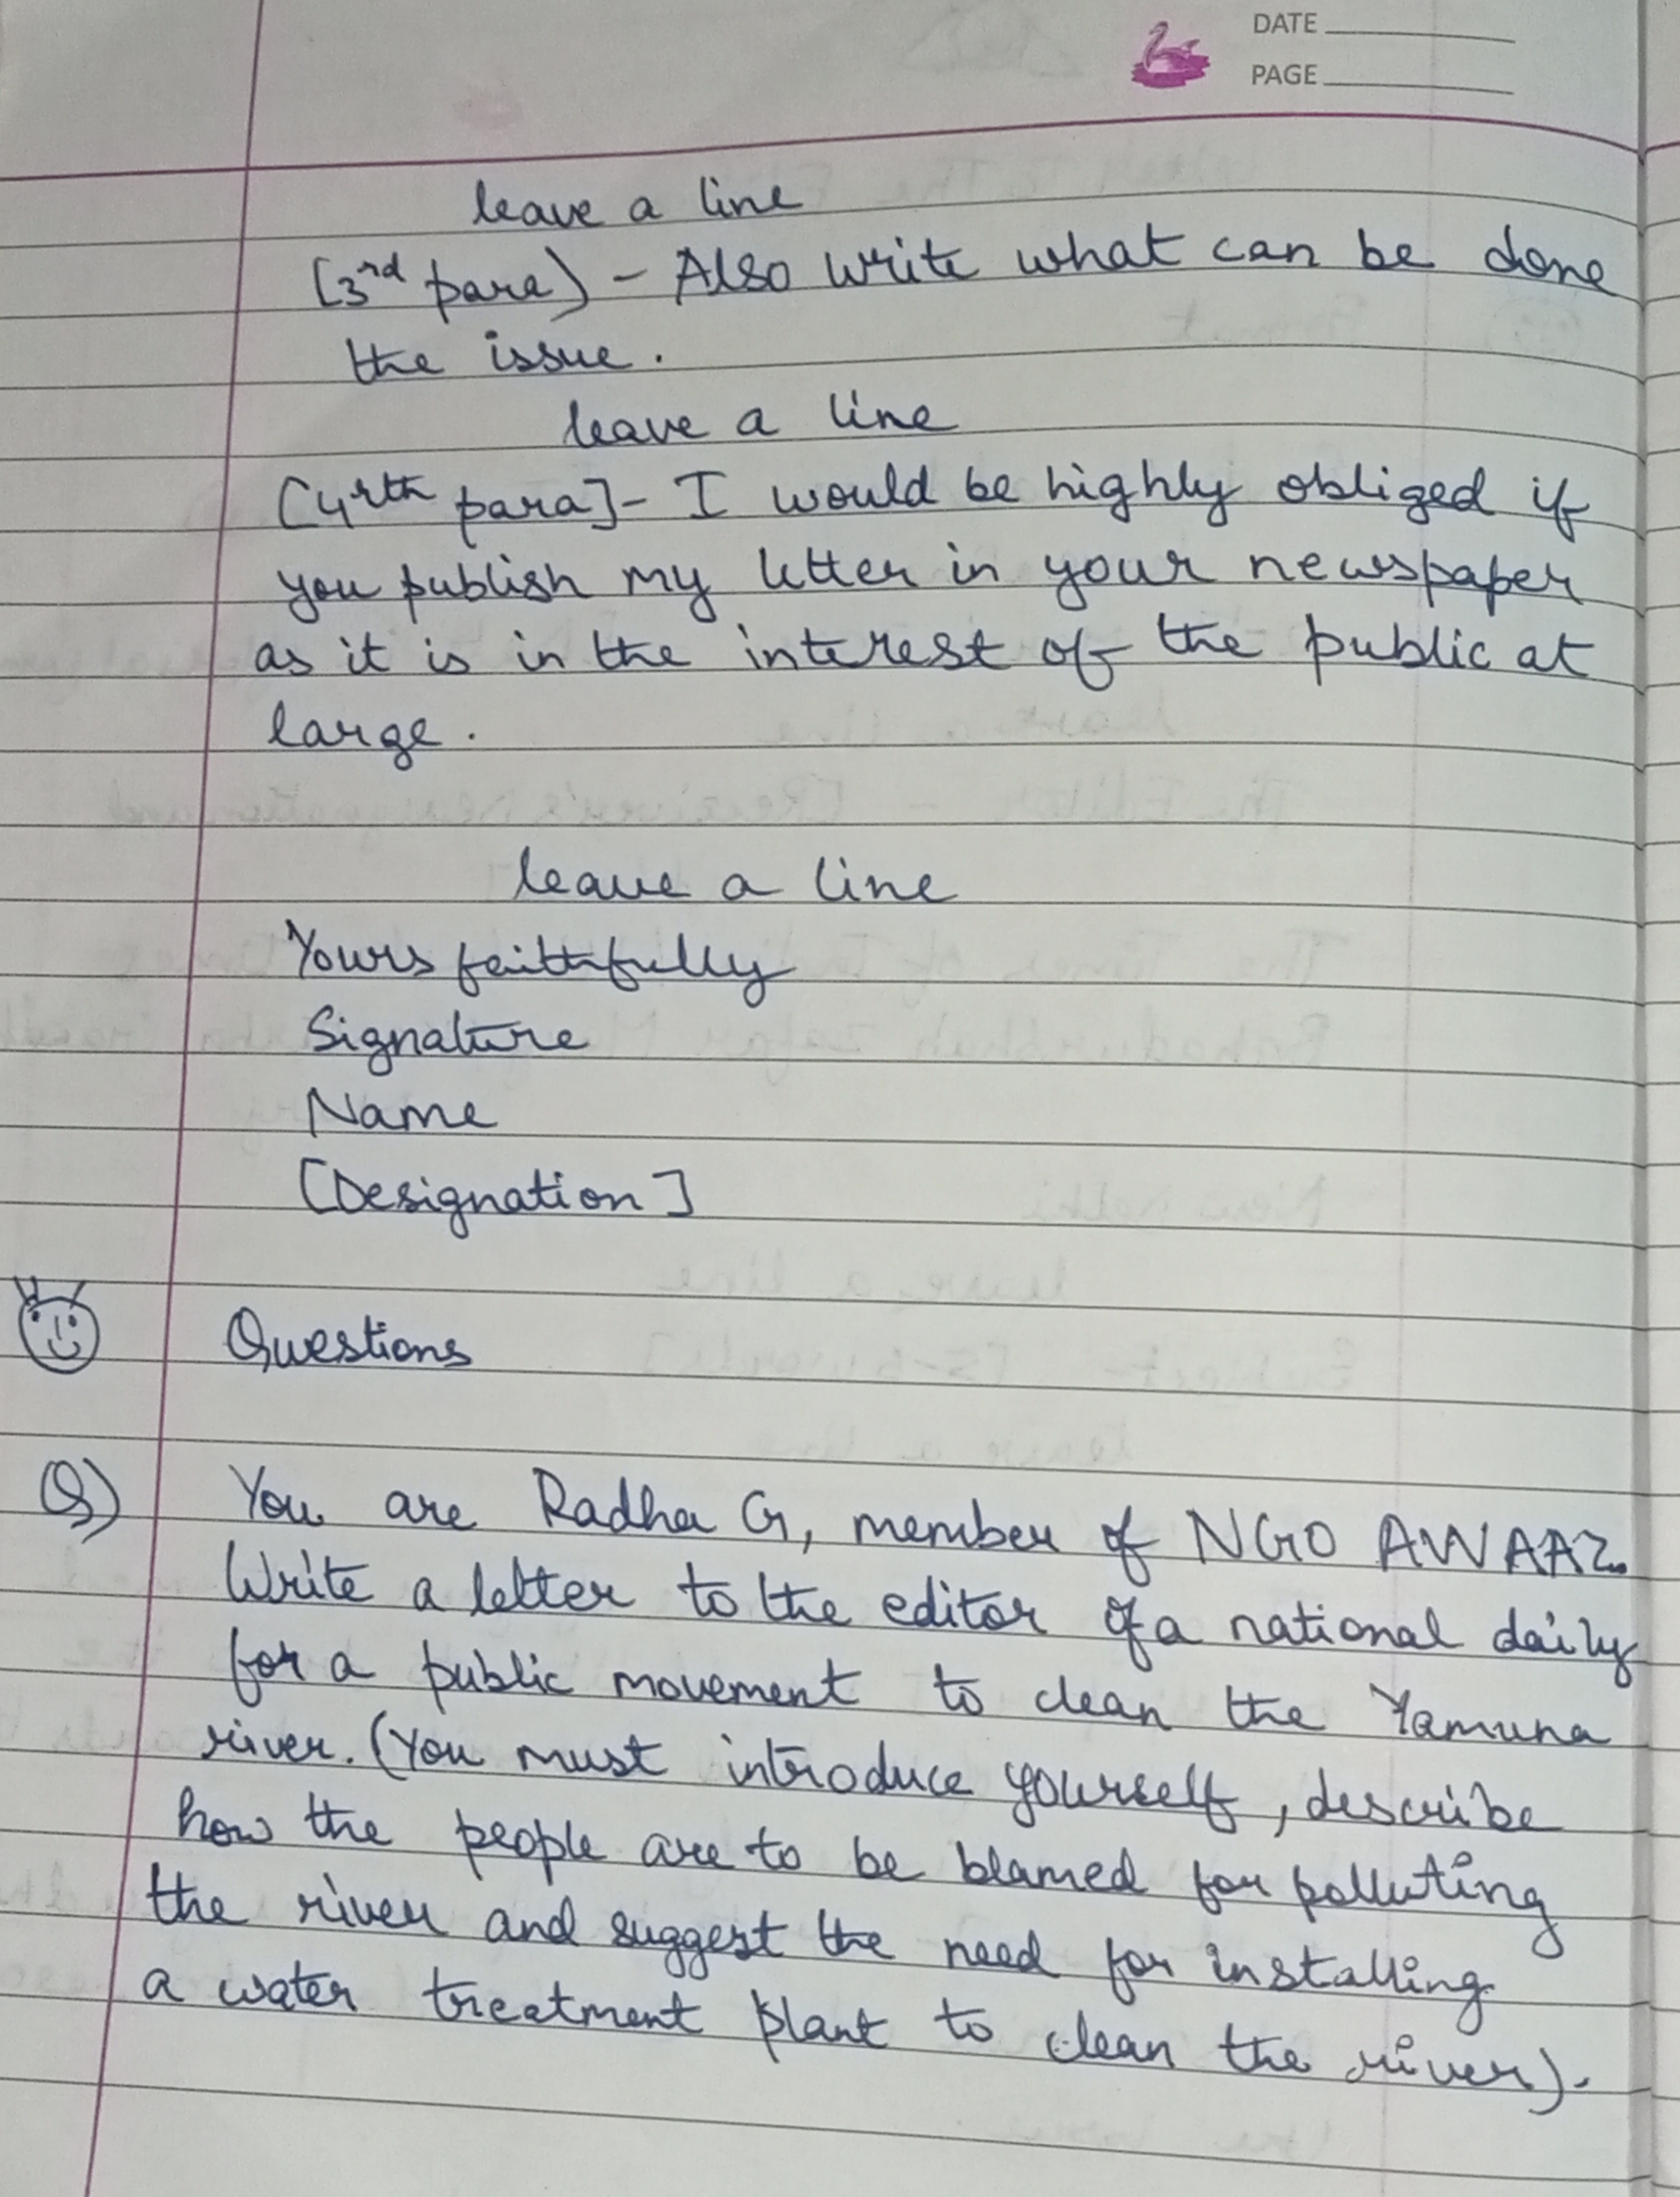 DATE
PAGE
leave a line
[3rd para) - Also write what can be done
the issue.
leave a line
[4rth para] - I would be highly obliged if
you publish my letter in your newspaper
as it is in the interest of the public at
large.
leave a line
Yours faithfully
Signature
Name
[Designation]
Questions
Q) You are Radha G, member of NGO AWAAZ.
Write a letter to the editor of a national daily
for a public movement to clean the Yamuna
river. (You must introduce yourself, describe
how the people are to be blamed for polluting
the river and suggest the need for installing
a water treatment plant to clean the river).